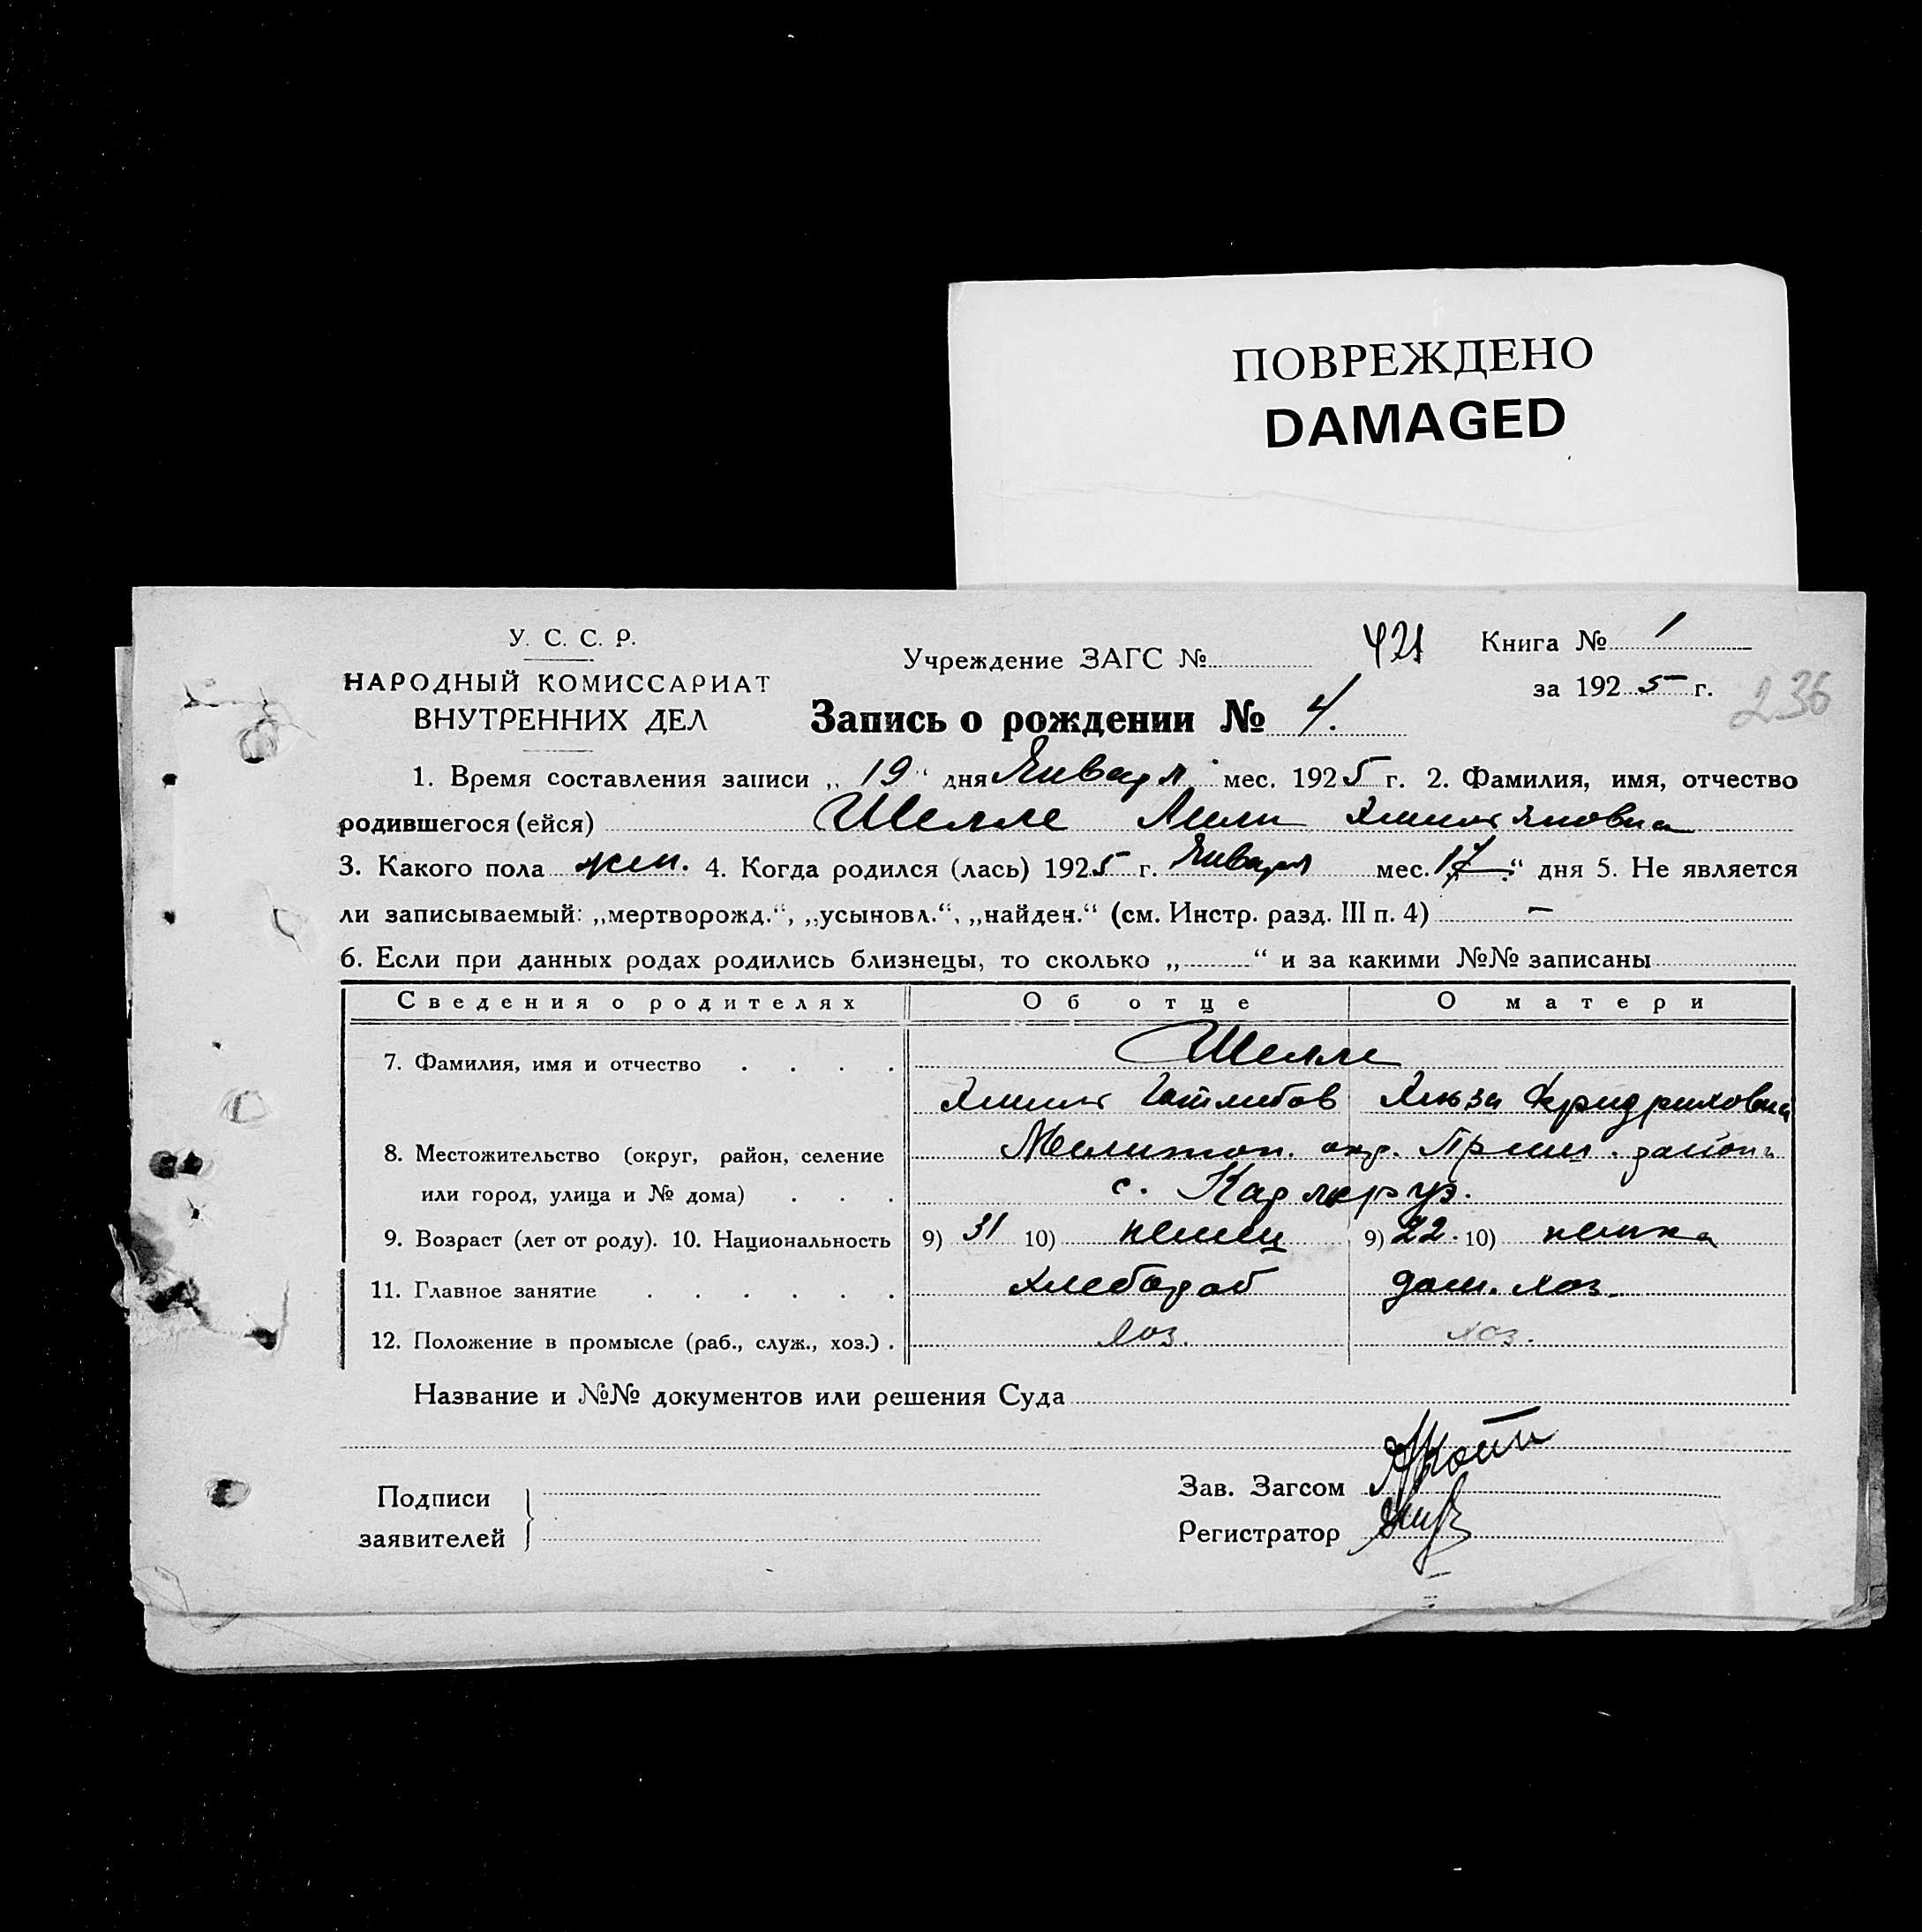 ПОВРЕЖДЕНО
DAMAGED
У. С. С. Р.
НАРОДНЫЙ КОМИССАРИАТ
ВНУТРЕННИХ ДЕЛ
Учреждение ЗАГС № 421
Книга № 1
за 1925 г.
236
Запись о рождении № 4.
1. Время составления записи „19“ дня Января мес. 1925 г. 2. Фамилия, имя, отчество
родившегося (ейся) Шелле
3. Какого пола жен. 4. Когда родился (лась) 1925 г. Января мес. 17 “ дня 5. Не является
ли записываемый: „мертворожд.“, „усыновл.“, „найден.“ (см. Инстр. разд. III п. 4) —
6. Если при данных родах родились близнецы, то сколько „ “ и за какими №№ записаны
Сведения о родителях Об отце О матери
7. Фамилия, имя и отчество Шелле
Готлибов Фридриховна
8. Местожительство (округ, район, селение Мелитоп. окр. Приш. района
или город, улица и № дома) с. Карлсруэ.
9. Возраст (лет от роду). 10. Национальность 9) 31 10) немец 9) 22. 10) немка
11. Главное занятие хлебороб дом. хоз.
12. Положение в промысле (раб., служ., хоз.) хоз. хоз.
Название и №№ документов или решения Суда
Подписи
заявителей
Зав. Загсом
Регистратор